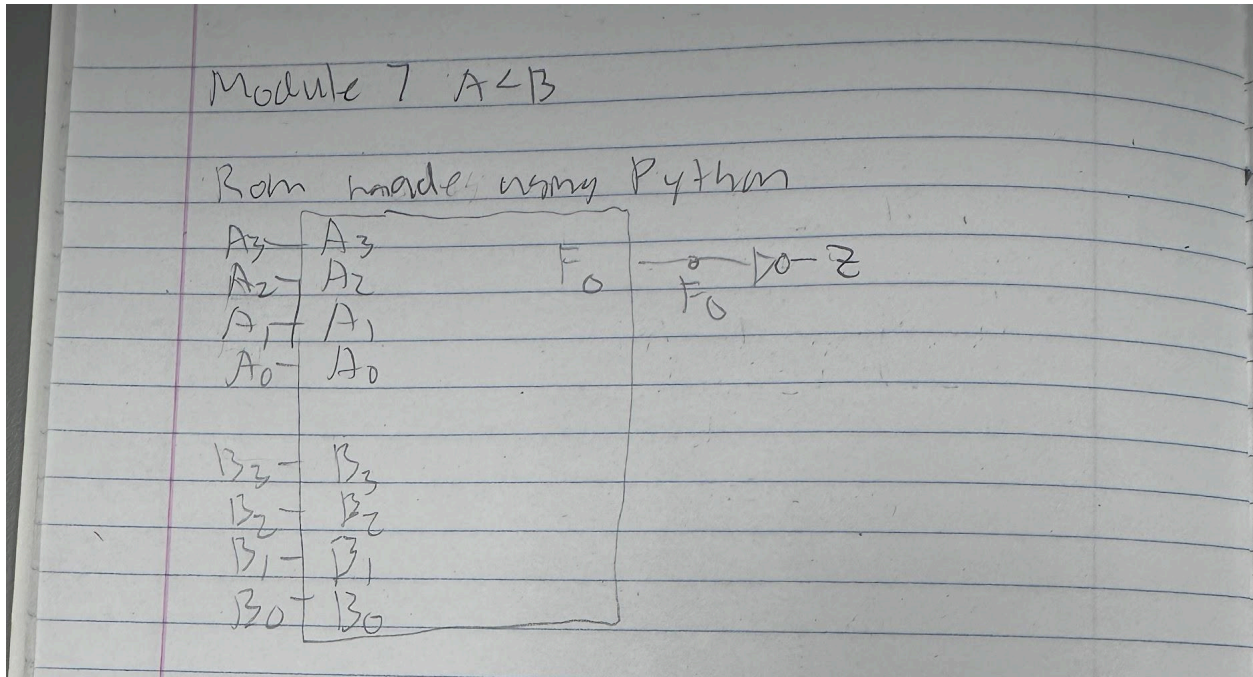 Module 7 A<B
Rom made using Python
A3 A3 F0 Z
A2 A2 F0
A1 A1
A0 A0
B3 B3
B2 B2
B1 B1
B0 B0